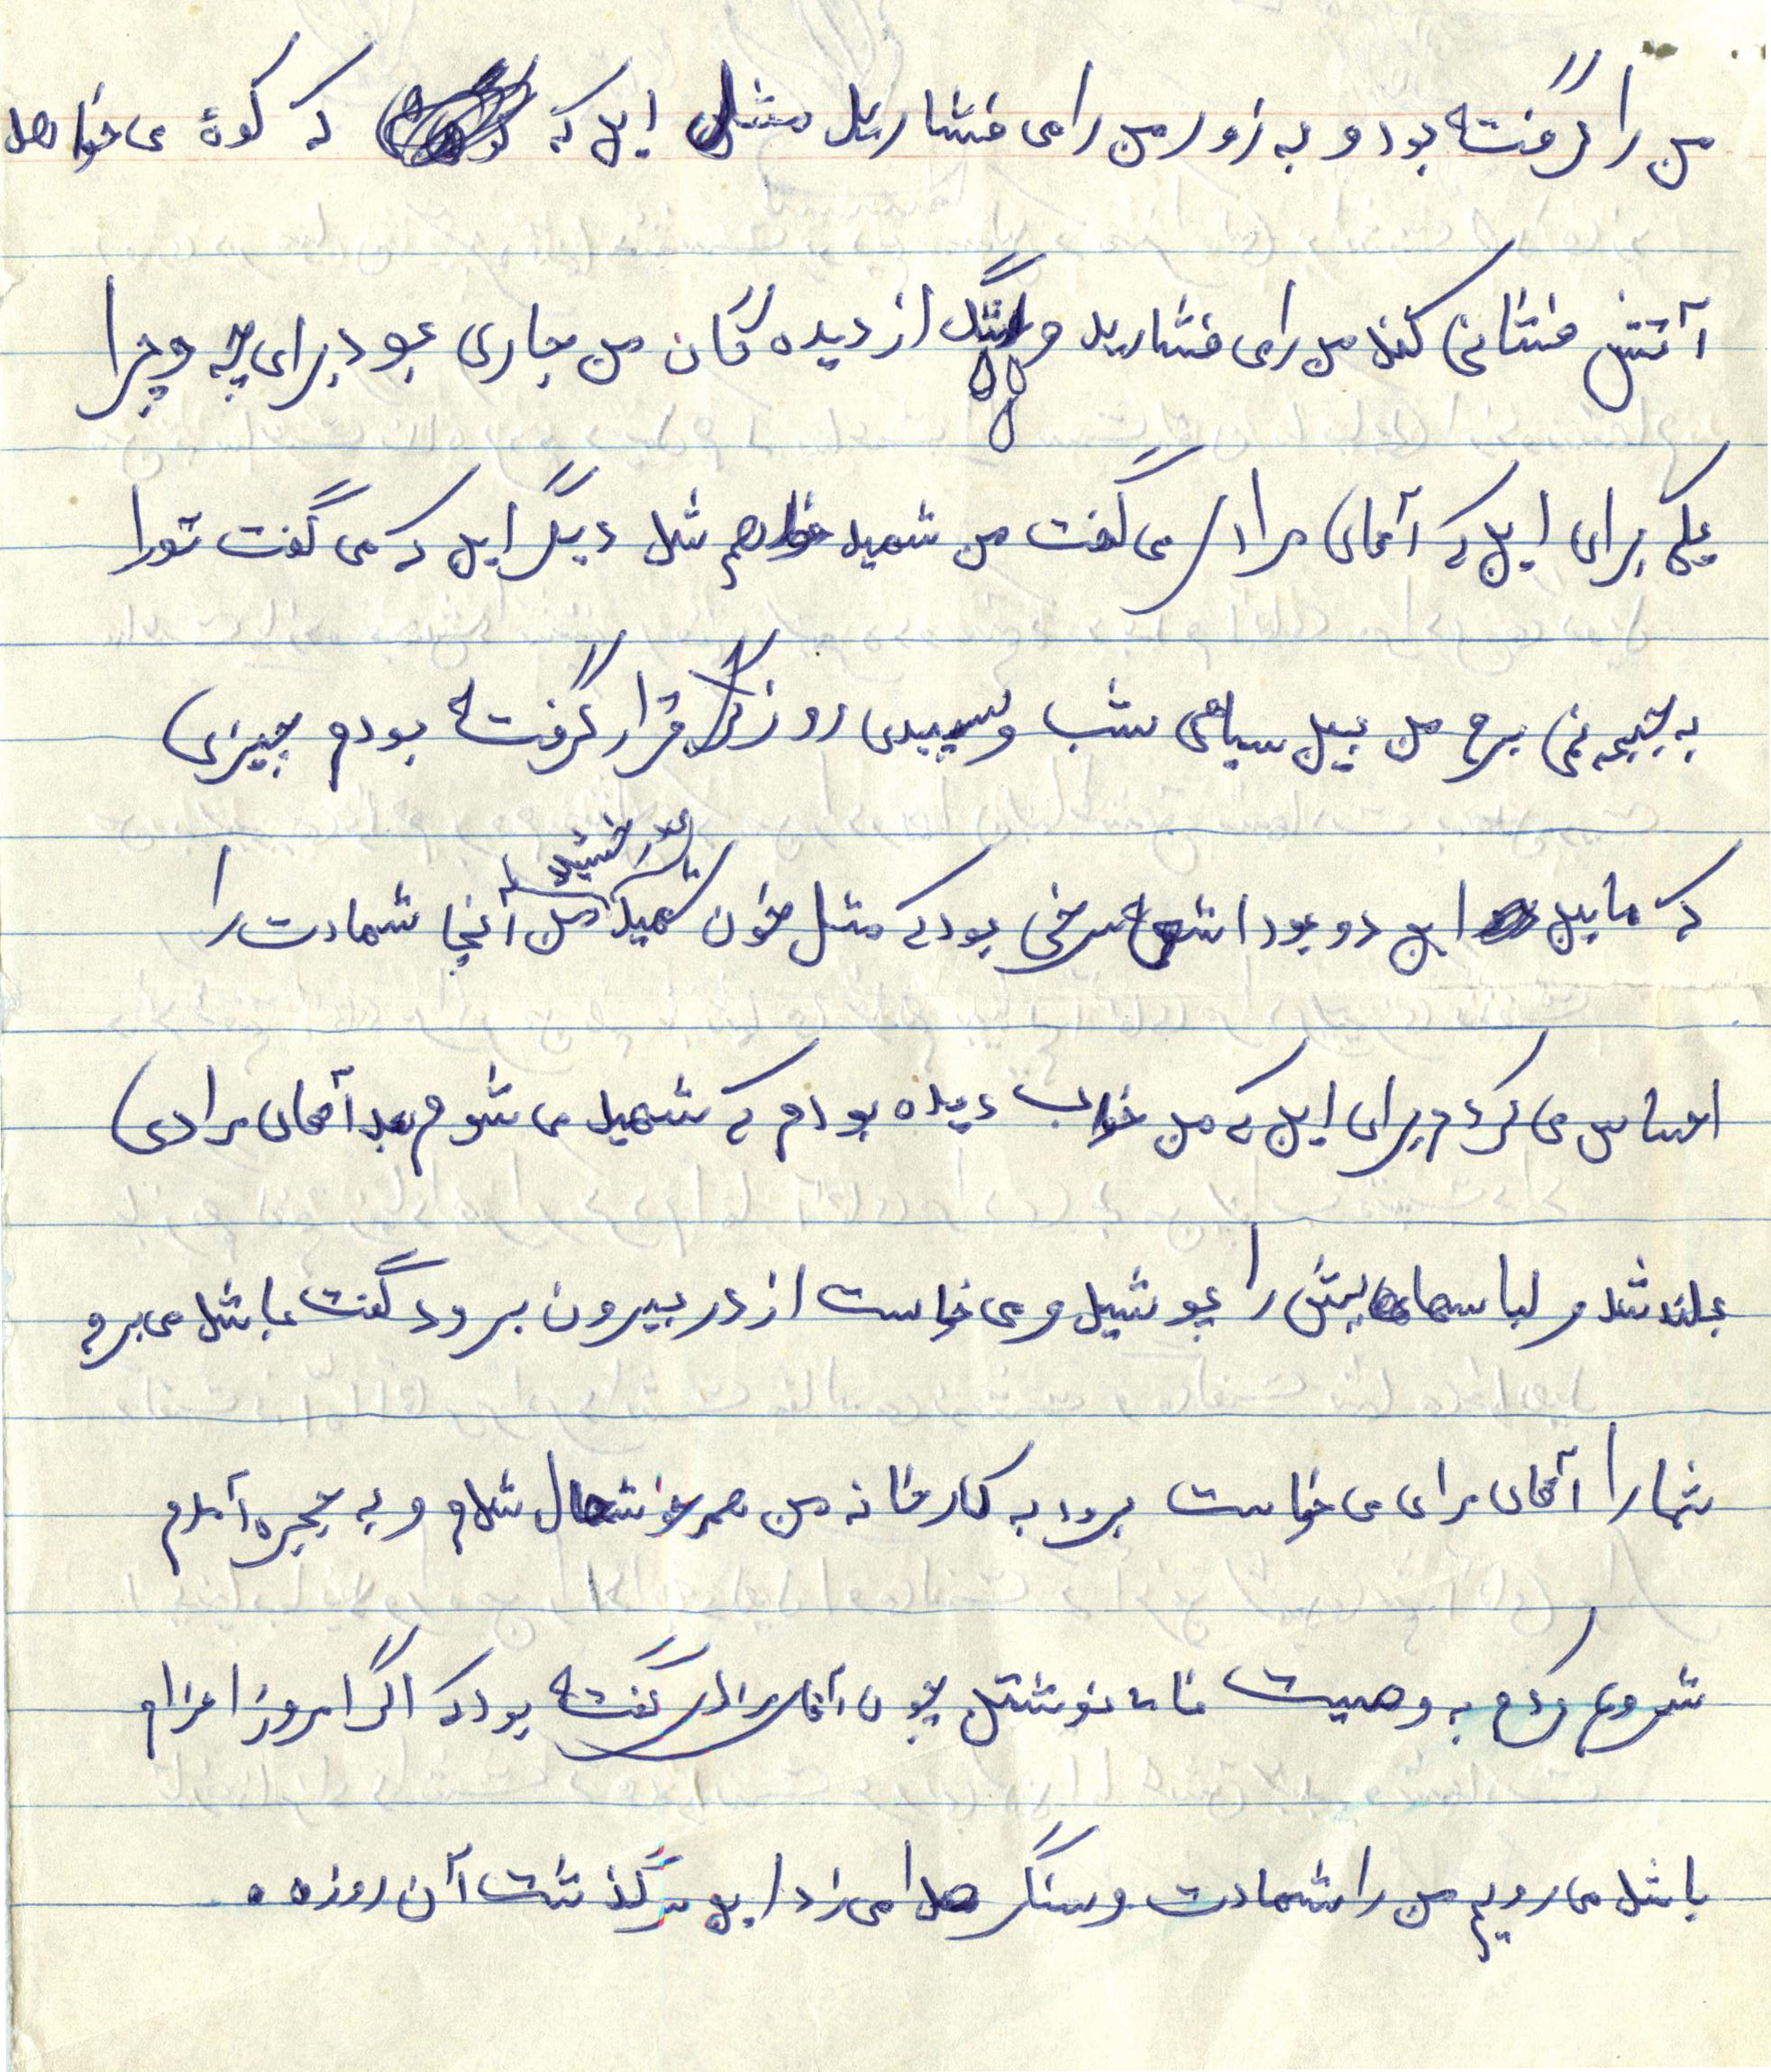 من را گرفته بود و به زور من را می فشارید مثل این که که کوهٔ می خواهد
آتش فشانی کند من را می فشارید و اشک از دیده گان من جاری بود برای چه و چرا
یکی برای این که آقای مرادی می گفت من شهید خواهم شد دیگر این که می گفت تو را
به جبهه نمی برم من بین سیاهی شب و سپیدی روز قرار گرفته بودم چیزی
که مابین این دو بود اشعه سرخی بود که مثل خون شهید می درخشید من آنجا شهادت را
احساس می کردم برای این که من خواب دیده بودم که شهید می شوم بعد آقای مرادی
بلند شد و لباسهایش را پوشید و می خواست از در بیرون برود گفت باشد می برم
شما را آقای مرادی می خواست برود به کارخانه من هم خوشحال شدم و به حجره آمدم
شروع کردم به وصیت نامه نوشتن چون آقای مرادی گفته بود که اگر امروز اعزام
باشد می رویم من را شهادت و سنگر صدا می زد این سرگذشت آن روزه